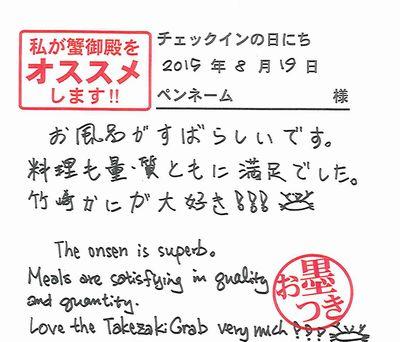 私が蟹御殿を
オススメ
します!!
チェックインの日にち
2015 年 8 月 19 日
ペンネーム 様
お風呂がすばらしいです。
料理も量・質ともに満足でした。
竹崎かにが大好き!!!
The onsen is superb.
Meals are satisfying in quality
and quantity.
Love the Takezaki Grab very much!!!
お墨つき